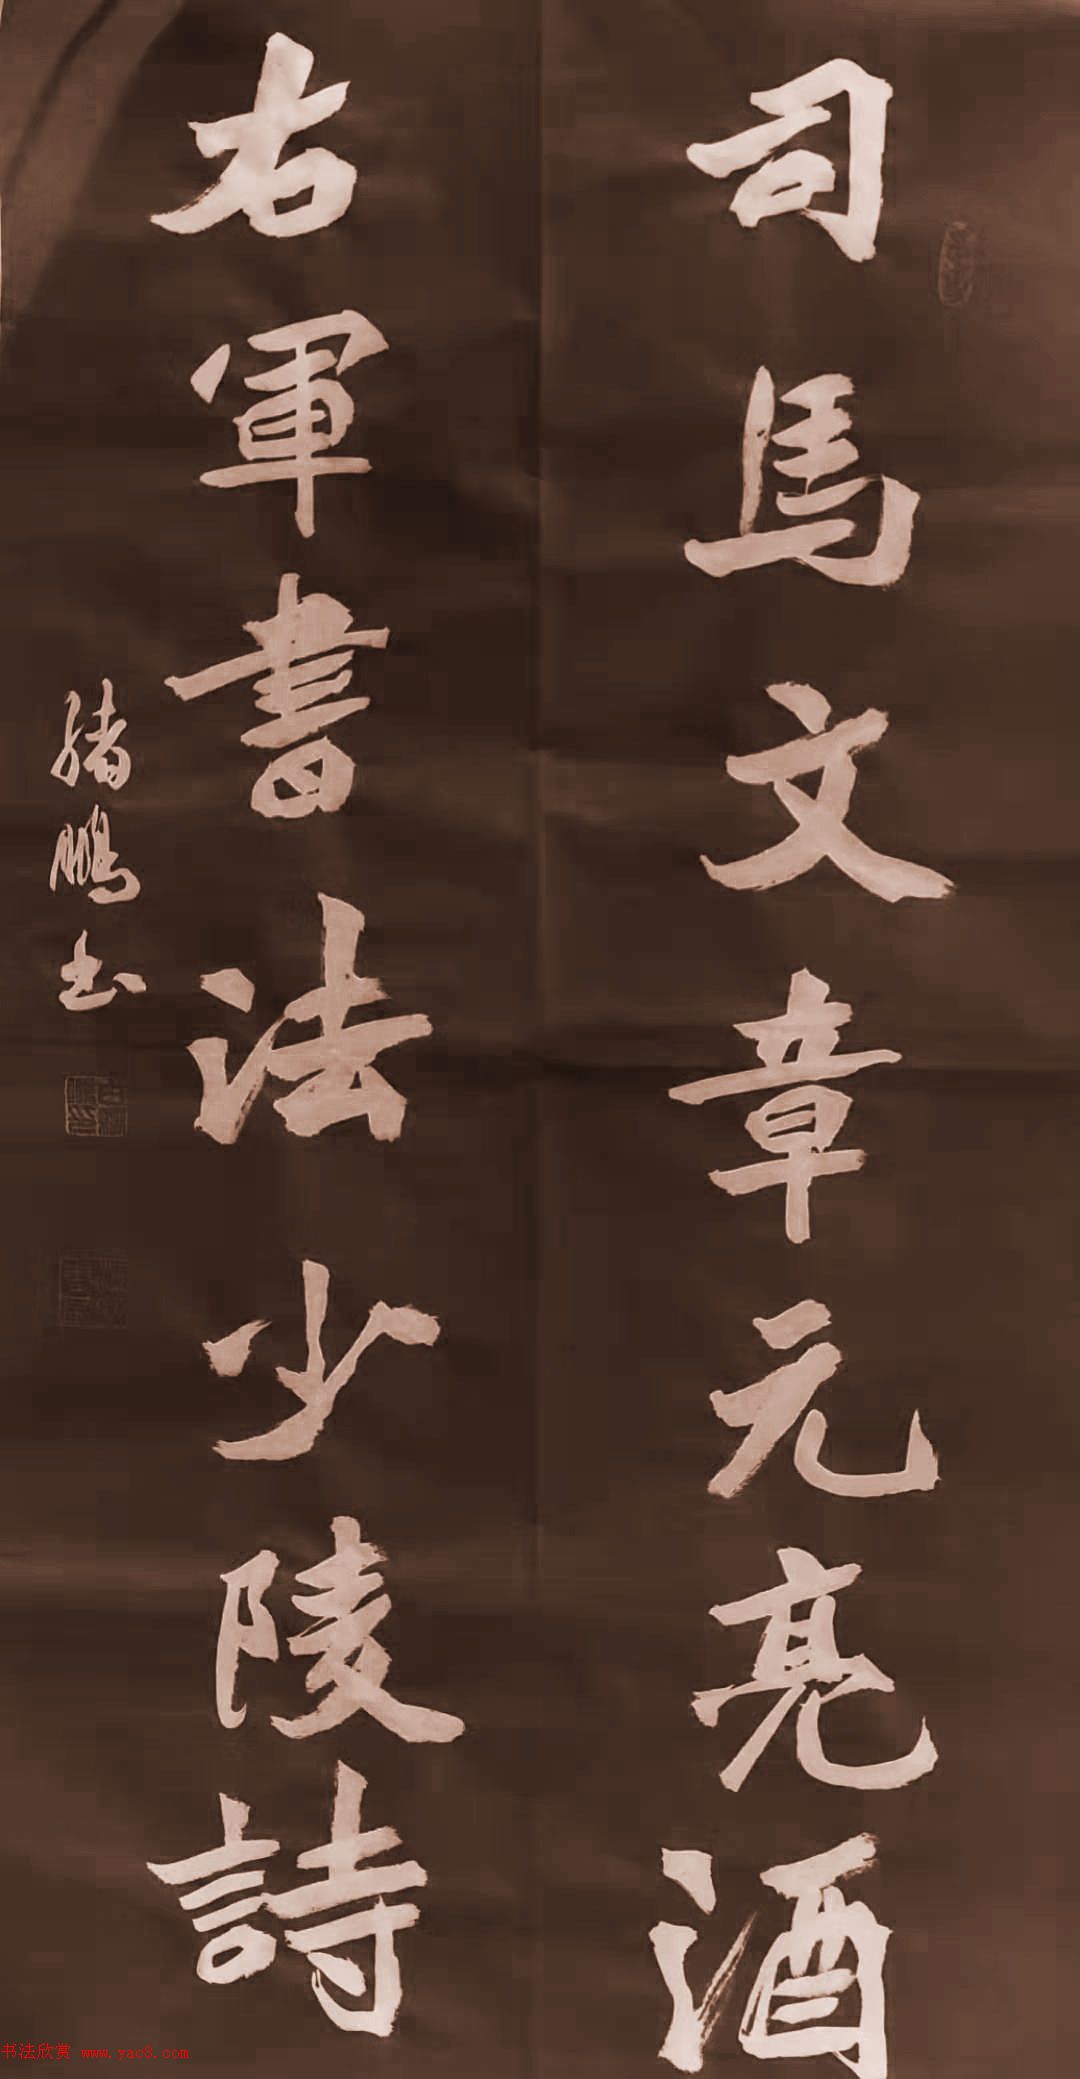 司馬文章元亮酒
右軍書法少陵詩
绪鵬书
书法欣赏 www.yac8.com